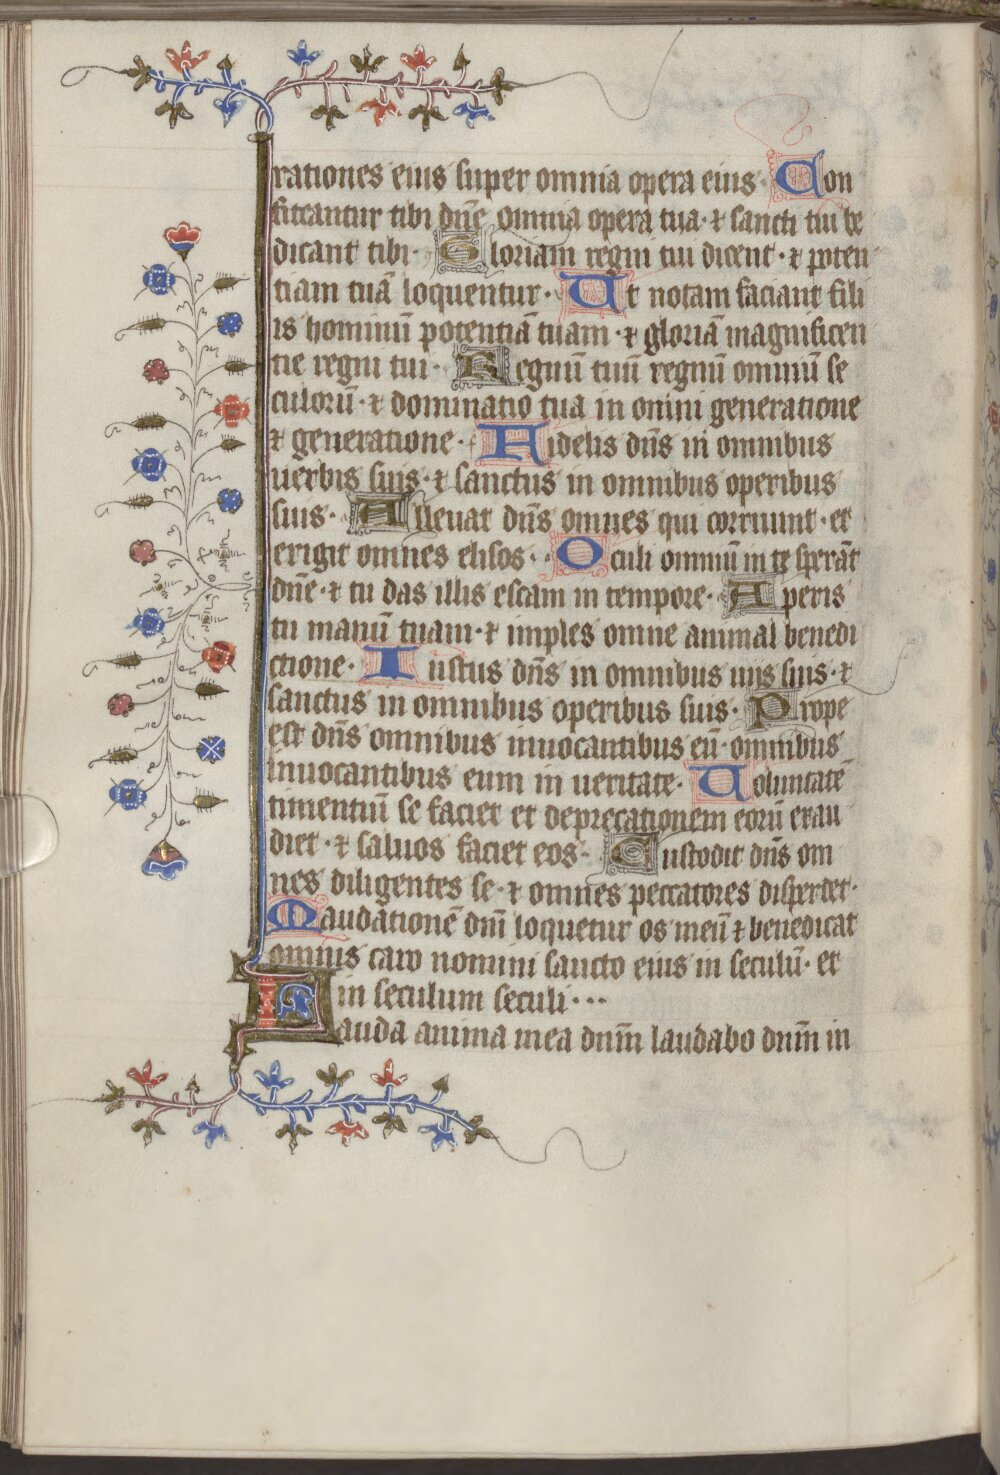 rationes eius super omnia opera eius · Con
fiteantur tibi dñe omnia opera tua · ⁊ sancti tui be
dicant tibi · Gloriam regni tui dicent · ⁊ poten
tiam tuā loquentur · Ut notam faciant fili
is hominū potentiā tuam · ⁊ gloriā magnificen
tie regni tui · Regnū tuū regnū omniū se
culorū · ⁊ dominatio tua in omni generatione
⁊ generatione · Fidelis dñs in omnibus
uerbis suis · ⁊ sanctus in omnibus operibus
suis · Alleuat dñs omnes qui corruunt · et
erigit omnes elisos · Oculi omniū in te sperāt
dñe · ⁊ tu das illis escam in tempore · Aperis
tu manū tuam · ⁊ imples omne animal benedi
ctione · Iustus dñs in omnibus uiis suis · ⁊
sanctus in omnibus operibus suis · Prope
est dñs omnibus inuocantibus eū · omnibus
inuocantibus eum in ueritate · Uoluntatē
timentiū se faciet et deprecationem eorū exau
diet · ⁊ saluos faciet eos · Custodit dñs om
nes diligentes se · ⁊ omnes peccatores disperdet ·
Laudationē dñi loquetur os meū ⁊ benedicat
omnis caro nomini sancto eius in seculū · et
in seculum seculi · · ·
Lauda anima mea dnm̄ laudabo dnm̄ in